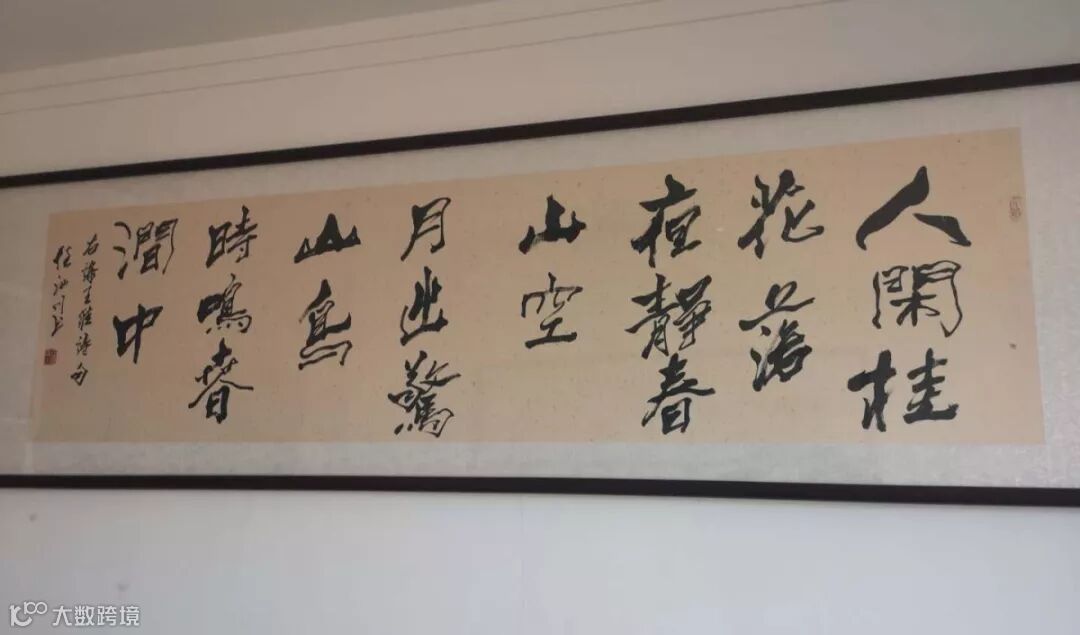 人閑桂
花落
夜靜春
山空
月出驚
山鳥
時鳴春
澗中
右錄王維詩句
大数跨境